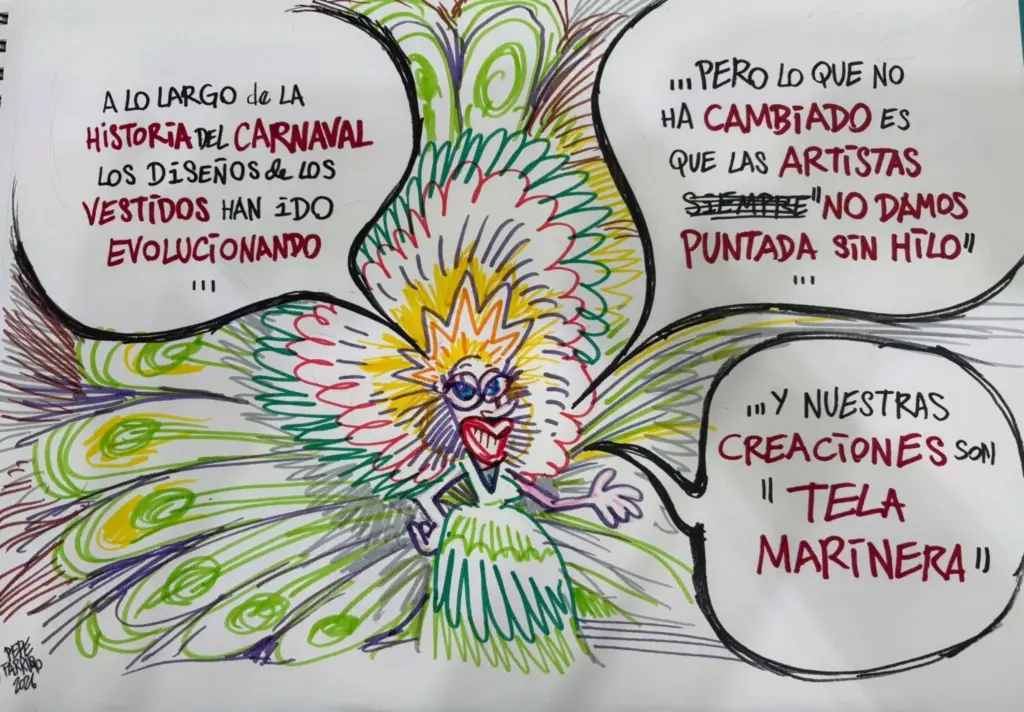 A LO LARGO de LA
HISTORIA DEL CARNAVAL
LOS DISEÑOS de LOS
VESTIDOS HAN IDO
EVOLUCIONANDO
...
...PERO LO QUE NO
HA CAMBIADO ES
QUE LAS ARTISTAS
SIEMPRE "NO DAMOS
PUNTADA SIN HILO"
...
...Y NUESTRAS
CREACIONES SON
"TELA
MARINERA"
PEPE
FARRUQO
2026